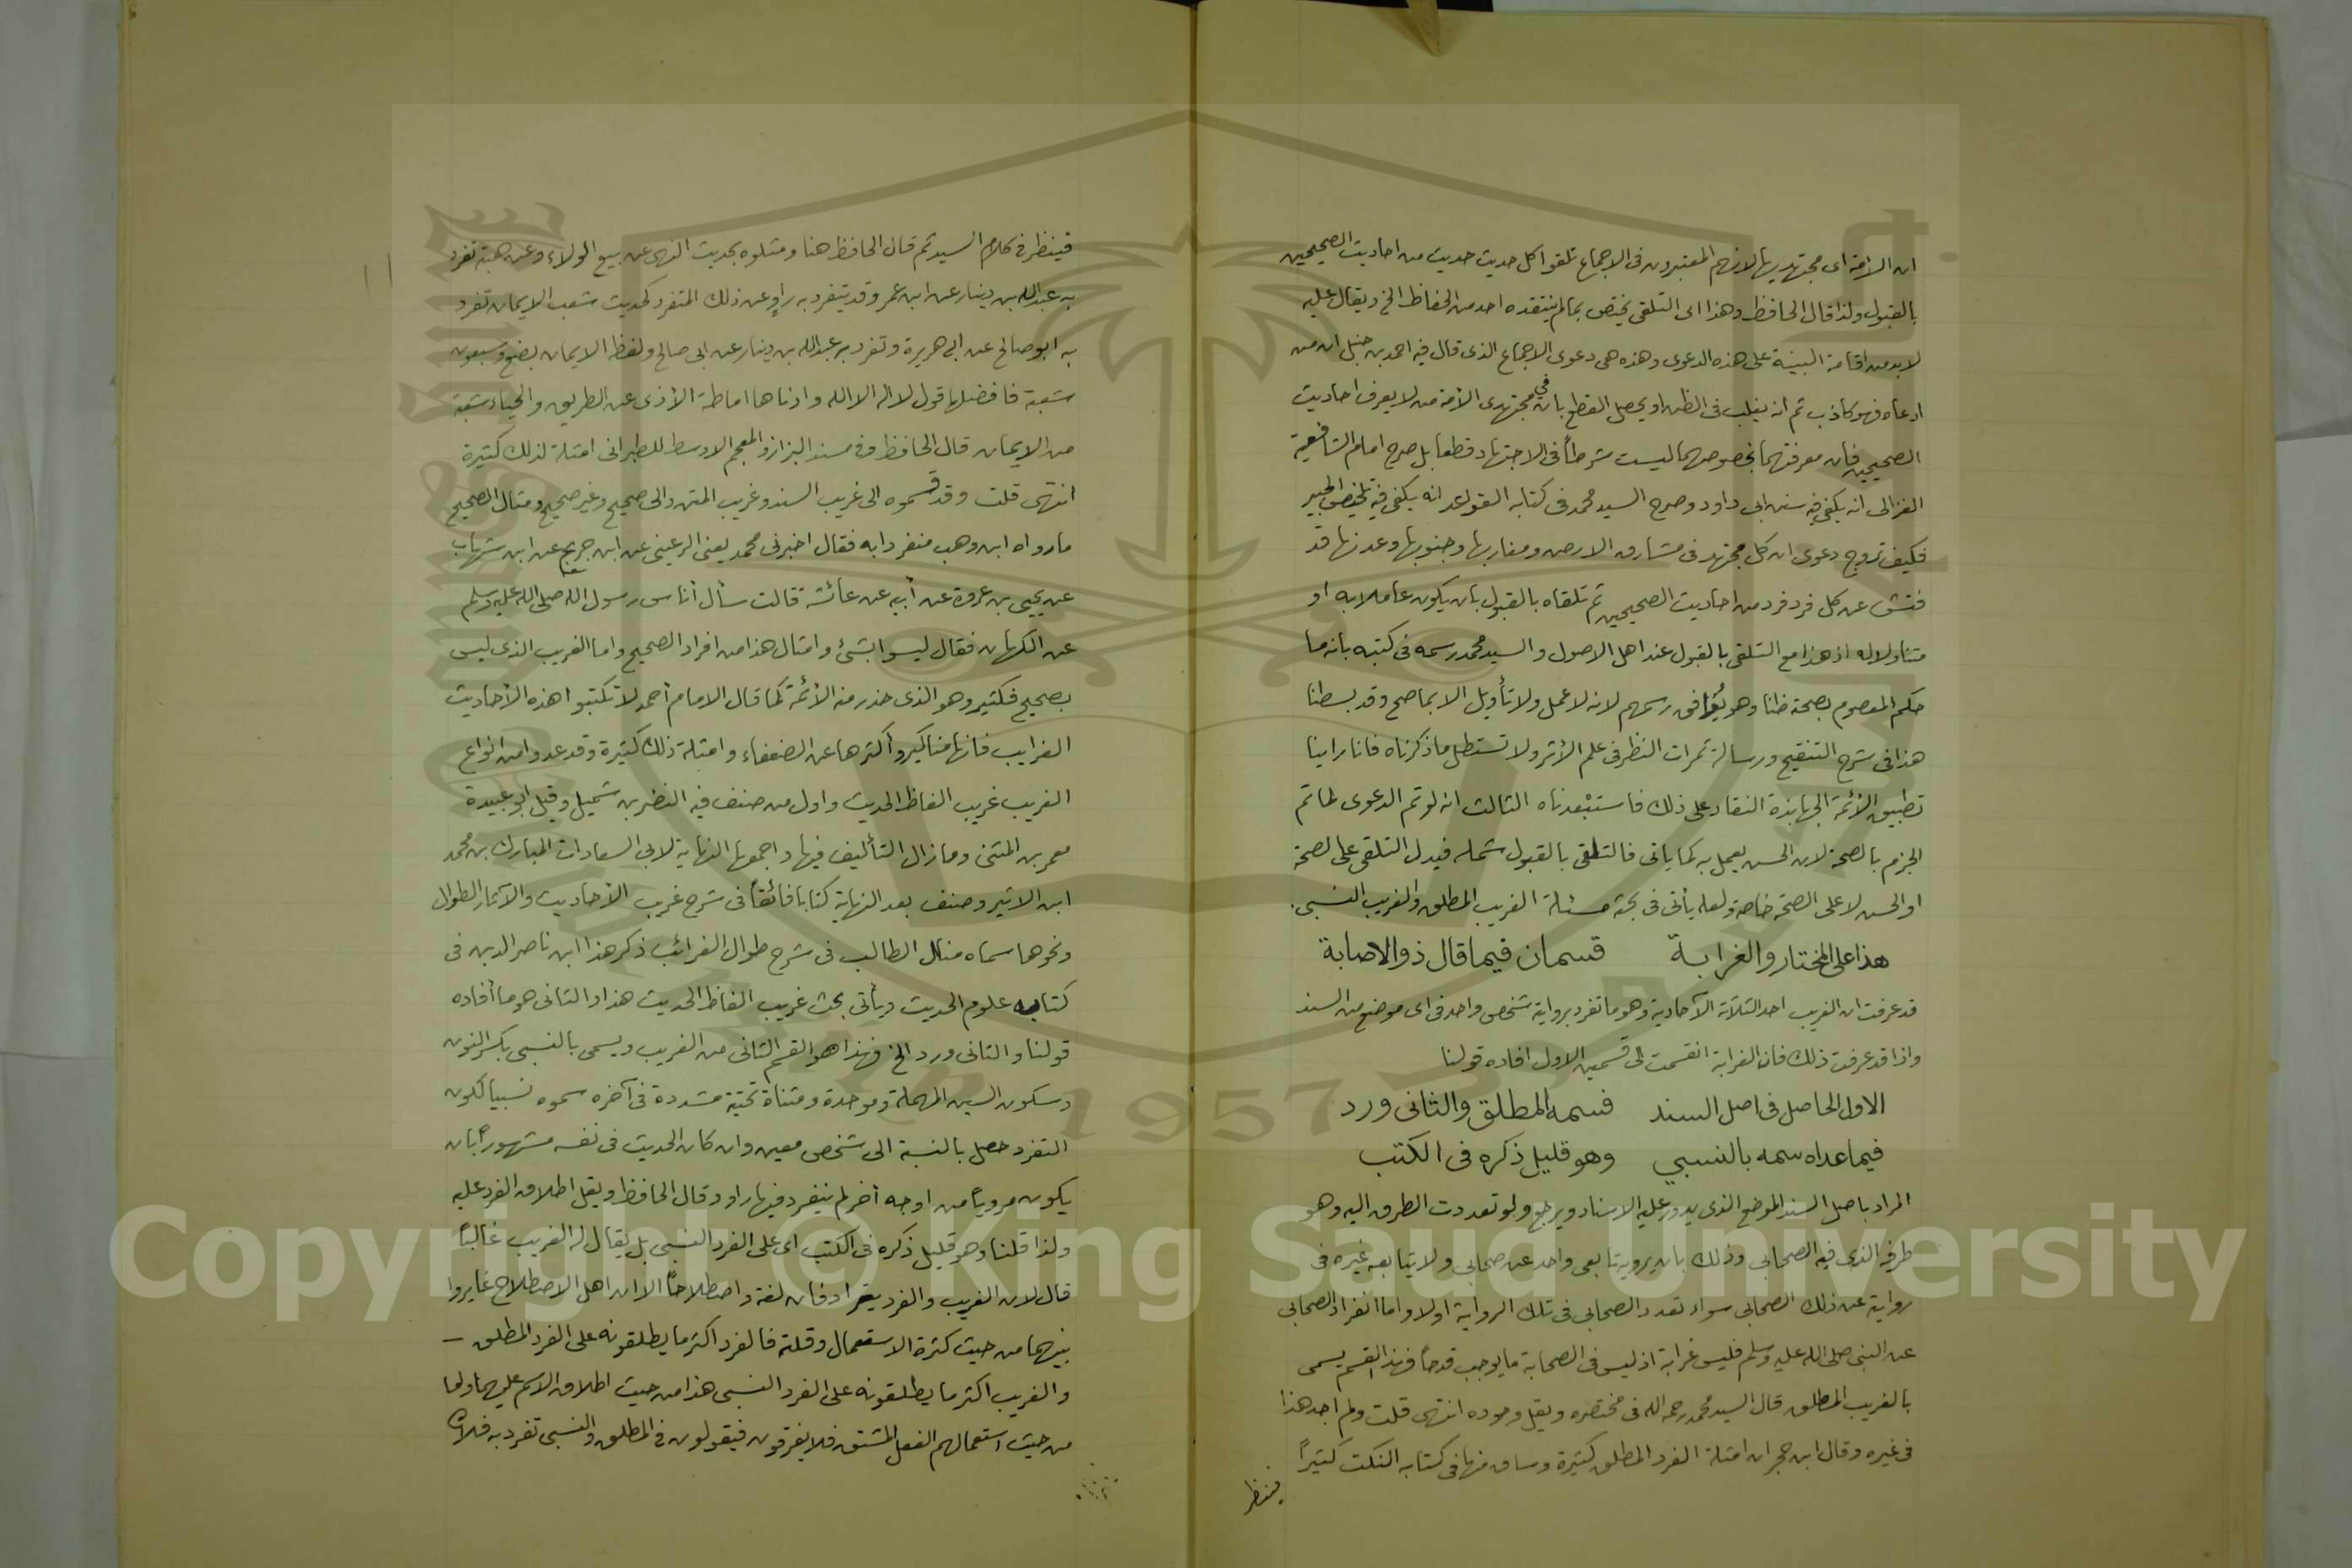 ان الأمة اى مجتهديها لانهم المعتبرون فى الاجماع تلقوا كل حديث حديث من احاديث الصحيحين
بالقبول ولذا قال الحافظ وهذا اى التلقى يختص بما لم ينتقده احد من الحفاظ الخ ويقال عليه
لا بد من اقامة البينة على هذه الدعوى وهذه هى دعوى الاجماع الذى قال فيه احمد بن حنبل ان من
ادعاه فهو كاذب ثم انه يغلب فى الظن او يحصل القطع بان فى مجتهدى الأمة من لا يعرف احاديث
الصحيحين فان معرفتهما بخصوصهما ليست شرطاً فى الاجتهاد قطعا بل صرح امام الشافعية
الغزالى انه يكفى فيه سنن ابى داود وصرح السيد محمد فى كتابه القواعد انه يكفى فيه تلخيص الحبير
فكيف تروج دعوى ان كل مجتهد فى مشارق الارض ومغاربها وجنوبها وعدنها قد
فتش عن كل فرد فرد من احاديث الصحيحين ثم تلقاه بالقبول بان يكون عاملا به او
متناولا له اذ هذا مع التلقى بالقبول عند اهل الاصول والسيد محمد رسمه فى كتبه بانه ما
حكم المعصوم بصحته ظنا وهو يوافق رسمهم لانه لا عمل ولا تأويل الا بما صح وقد بسطنا
هذا فى شرح التنقيح ورسالة ثمرات النظر فى علم الأثر ولا تستطل ما ذكرناه فانا راينا
تطبيق الأئمة الجهابذة النقاد على ذلك فاستبعدناه الثالث انه لو تم الدعوى لما تم
الجزم بالصحة لان الحسن يعمل به كما ياتى فالتلقى بالقبول شمله فيدل التلقى على لصحة
او الحسن لا على الصحة خاصة ولعله يأتى فى بحثه مسئلة الغريب المطلق والغريب النسبى.
هذا على المختار والغرابة قسمان فيما قال ذو الاصابة
قد عرفت ان الغريب احد الثلاثة الآحادية وهو ما تفرد برواية شخص واحد فى اى موضع من السند
واذا قد عرفت ذلك فان الغرابة انقسمت الى قسمين الاول افاده قولنا
الاول الحاصل فى اصل السند فسمه المطلق والثانى ورد
فيما عداه سمه بالنسبي وهو قليل ذكره فى الكتب
المراد باصل السند الموضع الذى يدور عليه الاسناد ويرجع ولو تعددت الطرق اليه وهو
طرفه الذى فيه الصحابي وذلك بان يرويه تابعى واحد عن صحابي ولا يتابعه غيره فى
رواية عن ذلك الصحابى سواء تعدد الصحابي فى تلك الرواية اولا واما انفراد الصحابى
عن النبى صلى الله عليه وسلم فليس غرابة اذ ليس فى الصحابة ما يوجب قدحاً فهذا القسم يسمى
بالغريب المطلق قال السيد محمد رحمه الله فى مختصره ويقل وجوده انتهى قلت ولم اجد هذا
فى غيره وقال ابن حجر ان امثلة الفرد المطلق كثيرة وساق منها فى كتابه النكت كثيراً
فينظر
فينظر فى كلام السيد ثم قال الحافظ هنا ومثلوه بحديث النهى عن بيع الولاء وعن هبته تفرد
به عبدالله بن دينار عن ابن عمر وقد يتفرد به راوٍ عن ذلك المتفرد كحديث شعب الايمان تفرد
به ابو صالح عن ابى هريرة وتفرد به عبدالله بن دينار عن ابى صالح ولفظه الايمان بضع وسبعون
شعبة فافضلها قول لا اله الا الله وادناها اماطة الأذى عن الطريق والحياء شعبة
من الايمان قال الحافظ وفى مسند البزاز والمعجم الاوسط للطبرانى امثلة لذلك كثيرة
انتهى قلت وقد قسموه الى غريب السند وغريب المتن والى صحيح وغير صحيح ومثال الصحيح
ما رواه ابن وهب منفردا به فقال اخبرنى محمد يعنى الرعينى عن ابن جريج عن ابن شهاب
عن يحيى بن عروة عن أبيه عن عائشة قالت سأل أناس رسول الله صلى الله عليه وسلم
عن الكهان فقال ليسوا بشئ وامثال هذا من افراد الصحيح واما الغريب الذى ليس
بصحيح فكثير وهو الذى حذر منه الأئمة كما قال الامام أحمد لا تكتبوا هذه الأحاديث
الغرايب فانها مناكير وأكثرها عن الضعفاء وامثلة ذلك كثيرة وقد عدوا من انواع
الغريب غريب الفاظ الحديث واول من صنف فيه النضر بن شميل وقيل ابو عبيدة
معمر بن المثنى وما زال التأليف فيها واجمعها النهاية لابى السعادات المبارك بن محمد
ابن الاثير وصنف بعد النهاية كتابا فائقاً فى شرح غريب الأحاديث والآثار الطوال
ونحوها سماه منال الطالب فى شرح طوال الغرائب ذكر هذا ابن ناصر الدين فى
كتابه علوم الحديث ويأتى بحث غريب الفاظ الحديث هذا والثانى هو ما أفاده
قولنا والثانى ورد الخ فهذا هو القسم الثانى من الغريب ويسمى بالنسبى بكسر النون
وسكون السين المهملة وموحدة ومثناة تحتية مشددة فى آخره سموه نسبيا لكون
التفرد حصل بالنسبة الى شخص معين وان كان الحديث فى نفسه مشهوراً بان
يكون مروياً من اوجه أخر لم ينفرد فيها راو وقال الحافظ ويقل اطلاق الفرد عليه
ولذا قلنا وهو قليل ذكره فى الكتب اى على الفرد النسبى بل يقال له الغريب غالباً
قال لان الغريب والفرد يترادفان لغة واصطلاحاً الا ان اهل الاصطلاح غايروا
بينهما من حيث كثرة الاستعمال وقلته فالفرد اكثر ما يطلقونه على الفرد المطلق –
والغريب اكثر ما يطلقونه على الفرد النسبى هذا من حيث اطلاق الاسم عليهما واما
من حيث استعمالهم الفعل المشتق فلا يفرقون فيقولون فى المطلق والنسبى تفرد به فلان
1957
Copyright © King Saud University